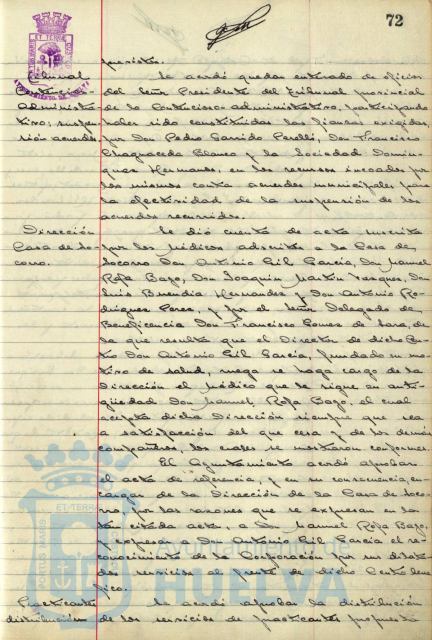 72
puestos.
Tribunal
contencioso
administra-
tivo; suspen-
sión acuerdos
Se acordó quedar enterado de oficio
del Señor Presidente del Tribunal provincial
de lo Contencioso-administrativo, participando
haber sido constituidas las fianzas exigidas,
por Don Pedro Garrido Perelló, Don Francisco
Chaguaceda Blanco y la Sociedad Domin-
guez Hermanos, en los recursos incoados por
los mismos contra acuerdos municipales para
la efectividad de la suspensión de los
acuerdos recurridos.
Dirección
Casa de So-
corro.
Se dió cuenta de acta suscrita
por los Médicos adscritos a la Casa de
Socorro Don Antonio Gil García, Don Manuel
Rofa Bazo, Don Joaquín Martín Vazquez, Don
Luis Buendia Hernandez y Don Antonio Ro-
driguez Perez, y por el Señor Delegado de
Beneficencia Don Francisco Gomez de Lara, de
la que resulta que el Director de dicho Cen-
tro Don Antonio Gil García, fundado en mo-
tivo de salud, ruega se haga cargo de la
Dirección el Médico que le sigue en anti-
güedad Don Manuel Rofa Bazo, el cual
acepta dicha Dirección siempre que sea
a satisfacción del que cesa y de los demás
compañeros, los cuales se mostraron conformes.
El Ayuntamiento acordó aprobar
el acta de referencia, y en su consecuencia, en-
cargar de la Dirección de la Casa de Soco-
rro, por las razones que se expresan en la
tan citada acta, a Don Manuel Rofa Bazo,
y expresar a Don Antonio Gil García el re-
conocimiento de la Corporación por sus dilata-
dos servicios al frente de dicho Centro bené-
fico.
Practicantes
distribución
Se acordó aprobar la distribución
de los servicios de practicantes propuesta
PORTUS MARIS ET TERRAE
Ayuntamiento de
HUELVA